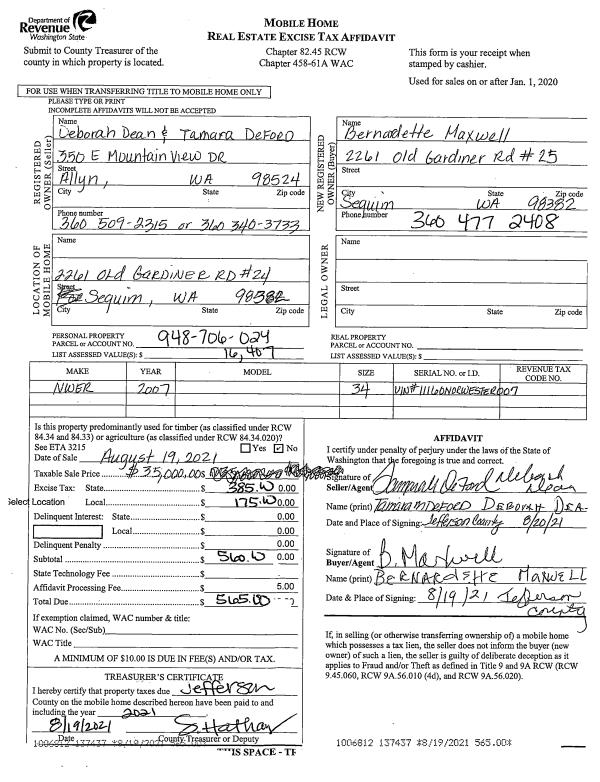 Department of
Revenue
Washington State
MOBILE HOME
REAL ESTATE EXCISE TAX AFFIDAVIT
Submit to County Treasurer of the
county in which property is located.
Chapter 82.45 RCW
Chapter 458-61A WAC
This form is your receipt when
stamped by cashier.
Used for sales on or after Jan. 1, 2020
FOR USE WHEN TRANSFERRING TITLE TO MOBILE HOME ONLY
PLEASE TYPE OR PRINT
INCOMPLETE AFFIDAVITS WILL NOT BE ACCEPTED
REGISTERED
OWNER (Seller)
Name
Deborah Dean & Tamara DeFord
350 E Mountain View DR
Street
Allyn, WA 98524
City State Zip code
Phone number
360 509-2315 or 360 340-3733
NEW REGISTERED
OWNER (Buyer)
Name
Bernadette Maxwell
2261 Old Gardiner Rd #25
Street
Sequim WA 98382
City State Zip code
Phone number 360 477 2408
LOCATION OF
MOBILE HOME
Name
2261 Old Gardiner RD #24
Street
Sequim, WA 98382
City State Zip code
LEGAL OWNER
Name
Street
City State Zip code
PERSONAL PROPERTY
PARCEL or ACCOUNT NO. 948-706-024
LIST ASSESSED VALUE(S): $ 16,407
REAL PROPERTY
PARCEL or ACCOUNT NO.
LIST ASSESSED VALUE(S): $
MAKE YEAR MODEL SIZE SERIAL NO. or I.D. REVENUE TAX CODE NO.
NWER 2007 34 VIN#11160NORWESTER007
Is this property predominantly used for timber (as classified under RCW
84.34 and 84.33) or agriculture (as classified under RCW 84.34.020)?
See ETA 3215 Yes ✓ No
Date of Sale August 19, 2021
Taxable Sale Price $ 35,000.00
Excise Tax: State $ 385.00 0.00
Select Location Local $ 175.00 0.00
Delinquent Interest: State $ 0.00
Local $ 0.00
Delinquent Penalty $ 0.00
Subtotal $ 560.00 0.00
State Technology Fee $
Affidavit Processing Fee $ 5.00
Total Due $ 565.00
If exemption claimed, WAC number & title:
WAC No. (Sec/Sub)
WAC Title
A MINIMUM OF $10.00 IS DUE IN FEE(S) AND/OR TAX.
TREASURER'S CERTIFICATE
I hereby certify that property taxes due Jefferson
County on the mobile home described hereon have been paid to and
including the year 2021
8/19/2021 S. Hathaway
Date County Treasurer or Deputy
1006812 137437 *8/19/2021 565.00*
AFFIDAVIT
I certify under penalty of perjury under the laws of the State of
Washington that the foregoing is true and correct.
Signature of
Seller/Agent Tamara DeFord Deborah Dean
Name (print) Tamara M DeFord Deborah Dea
Date and Place of Signing: Jefferson County 8/20/21
Signature of
Buyer/Agent B. Maxwell
Name (print) BERNADETTE MAXWELL
Date & Place of Signing: 8/19/21 Jefferson
County
If, in selling (or otherwise transferring ownership of) a mobile home
which possesses a tax lien, the seller does not inform the buyer (new
owner) of such a lien, the seller is guilty of deliberate deception as it
applies to Fraud and/or Theft as defined in Title 9 and 9A RCW (RCW
9.45.060, RCW 9A.56.010 (4d), and RCW 9A.56.020).
IS SPACE - TR
1006812 137437 *8/19/2021 565.00*